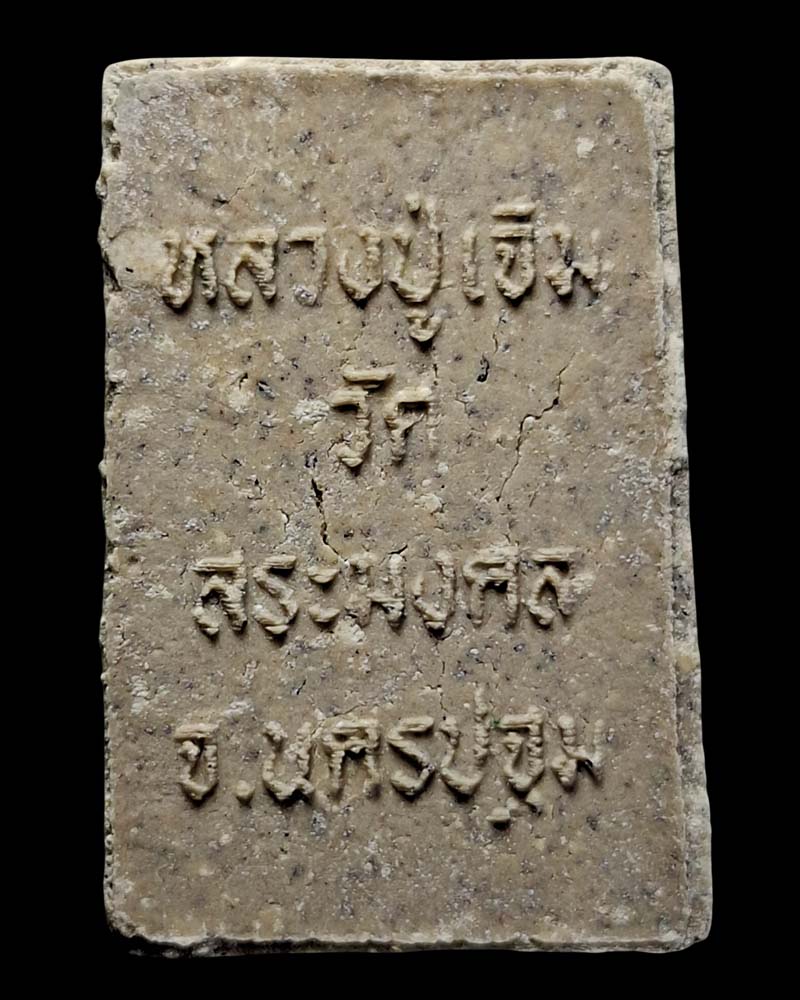 หลวงปู่เจิม
วัด
สระมงคล
จ.นครปฐม